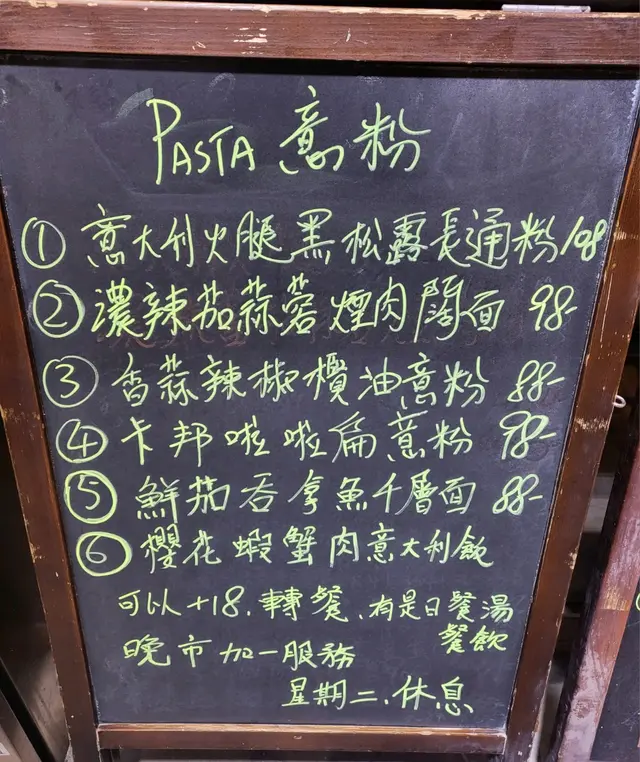 PASTA 意粉
① 意大利火腿黑松露長通粉 108
② 濃辣茄蒜蓉煙肉闊面 98-
③ 香蒜辣椒欖油意粉 88-
④ 卡邦啦啦扁意粉 98-
⑤ 鮮茄吞拿魚千層面 88-
⑥ 櫻花蝦蟹肉意大利飯
可以+18.轉餐、有是日餐湯
餐飲
晚市加一服務
星期二.休息